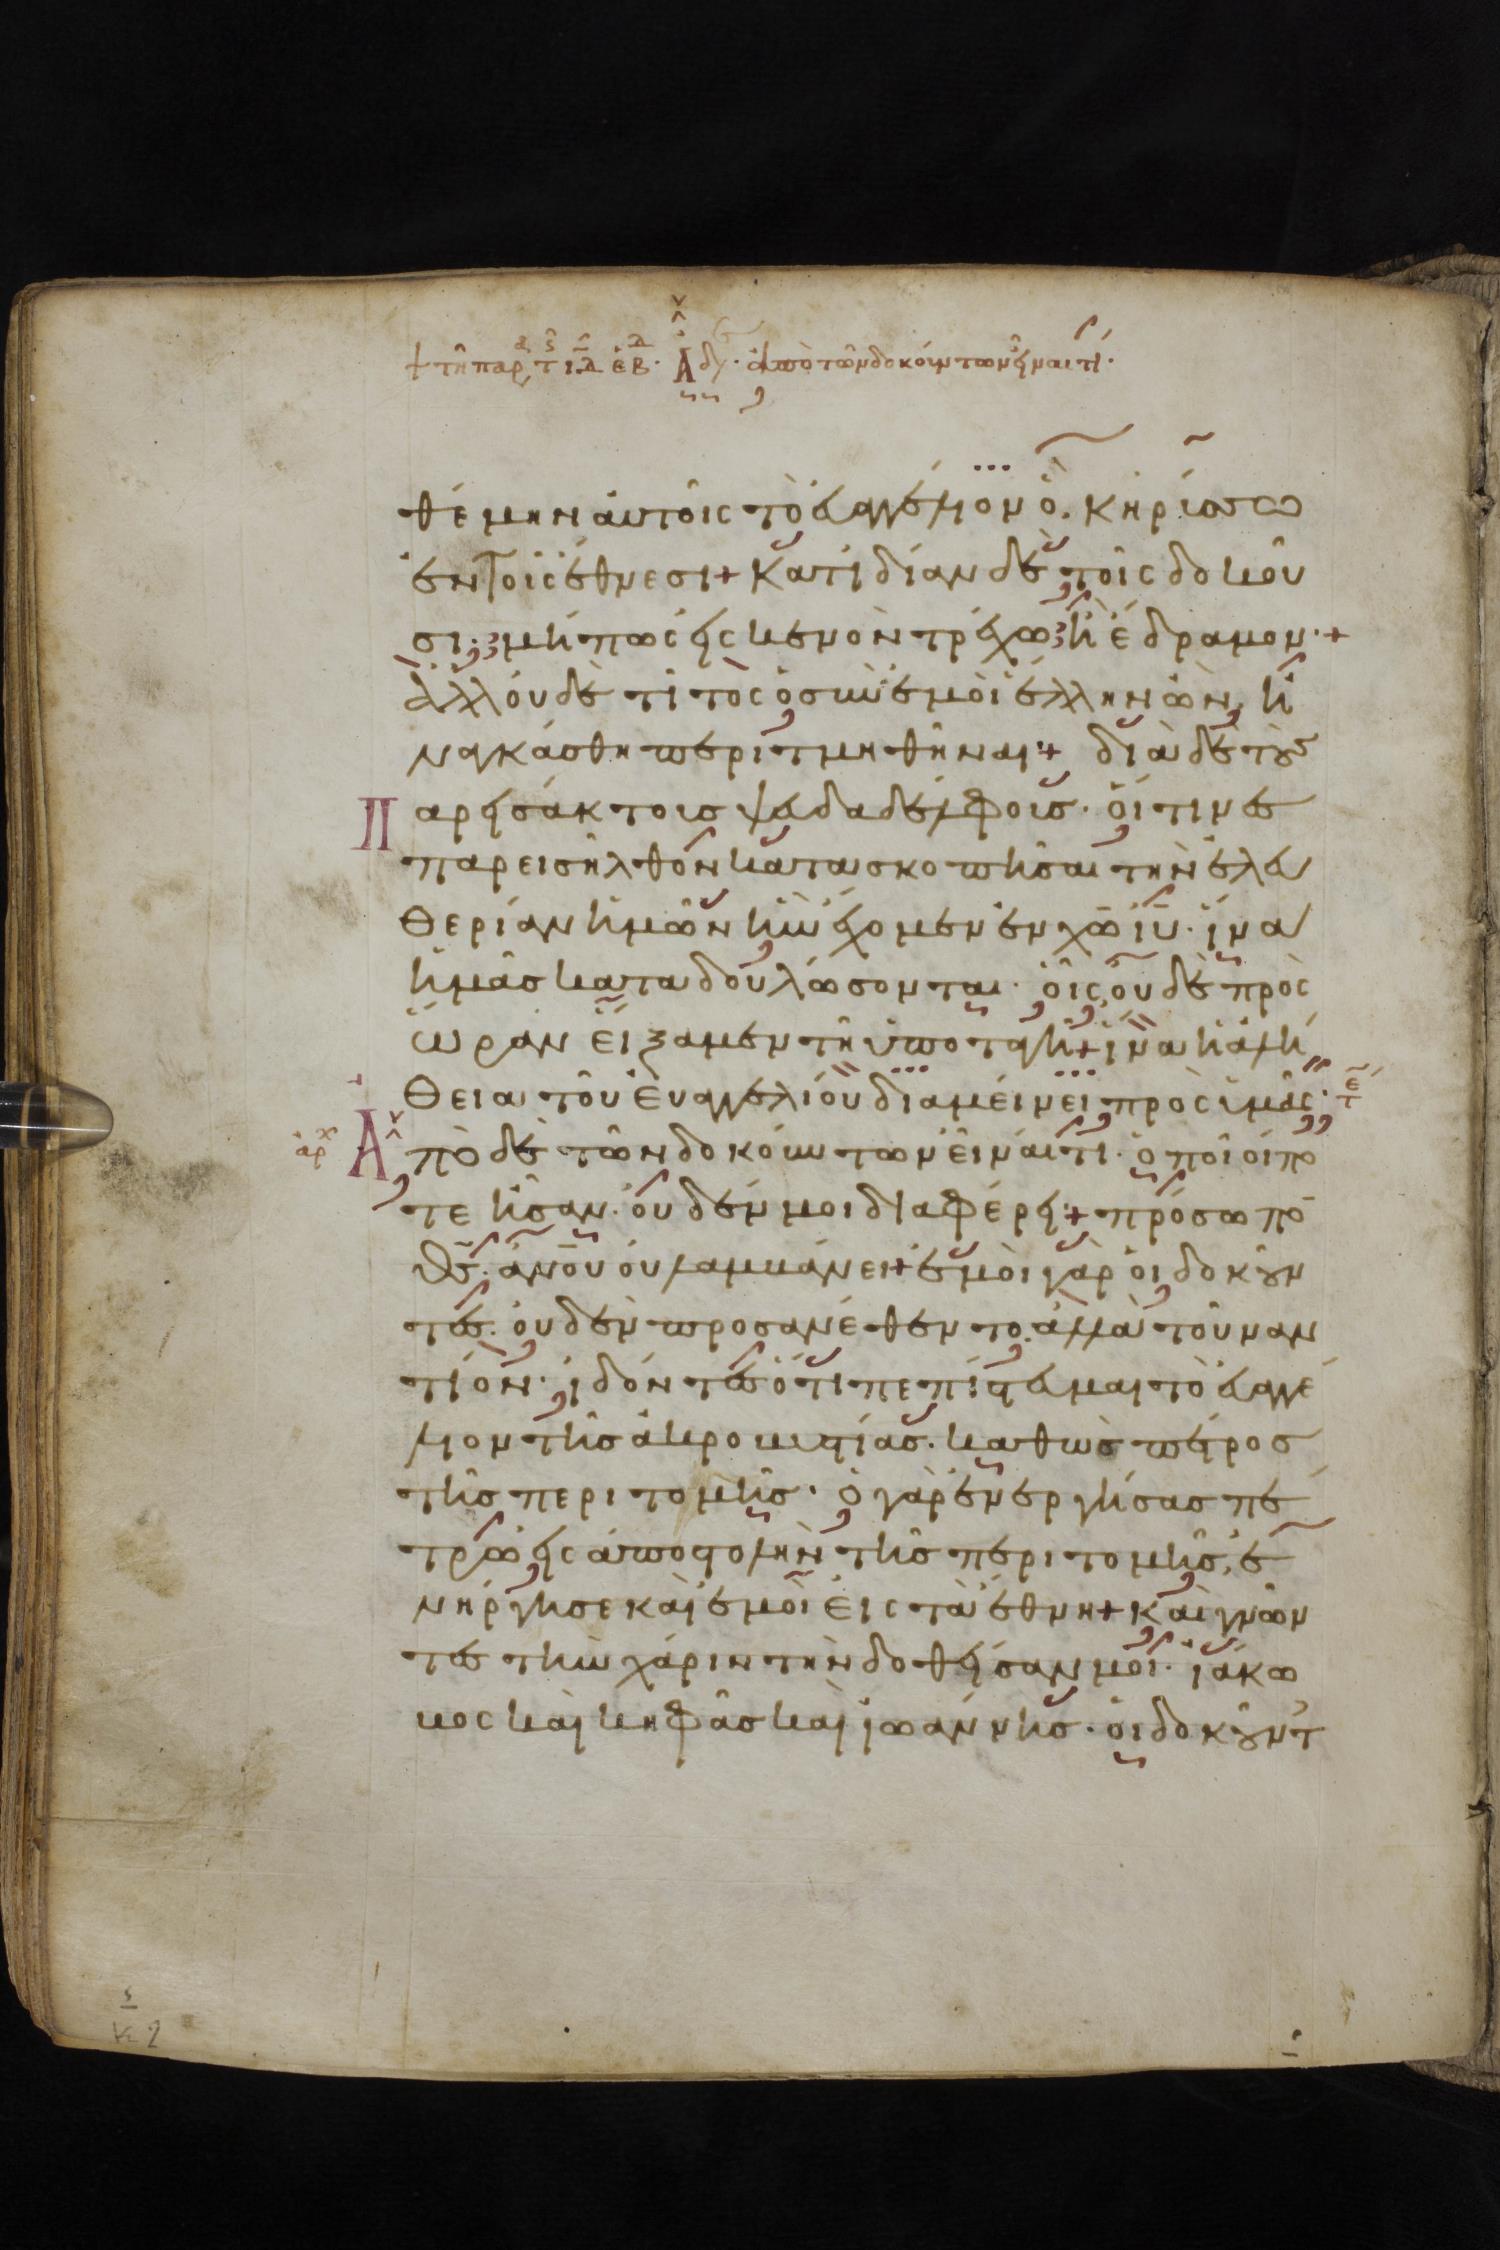 τῆ παρ τ ιδ εβ. Ἀδ. ἀπὸ τῶν δοκόυντων ἦναι τὶ.
θέμην αὐτοῖς τὸ ἐυαγγέλιον ὃ κηρίσσω
ἐν τοῖς ἔθνεσι + κατιδίαν δὲ τοῖς δοκοῦ
σι. μήπως εἰς κενὸν τρέχω ἢ ἔδραμον. +
ἀλλ' ὀυδὲ τίτος ὁ σὺν ἐμοὶ ἕλλην ὢν, ἠ
ναγκάσθη περιτμηθῆναι + διὰ δὲ τοὺς
Παρεισάκτους ψευδαδέλφους. οἵτινες
παρεισῆλθον κατασκοπῆσαι τὴν ἐλευ
θερίαν ἡμῶν ἣν ἔχομεν ἐν χῶ ιῦ. ἵνα
ἡμᾶς καταδουλώσονται. οἷς ὀυδὲ πρὸς
ὥραν εἴξαμεν τῆ ὑποταγῆ + ἵνα ἡ ἀλή
θεια τοῦ ἐυαγγελίου διαμείνει πρὸς ὑμᾶς.
Ἀπὸ δὲ τῶν δοκόυντων εἶναί τι. ὁποῖοί πο
τε ἦσαν. ὀυδέν μοι διαφέρει + πρόσωπο
θς. ἀνου ὀυ λαμβάνει + ἐμοὶ γὰρ οἱ δοκοῦν
τες. ὀυδὲν προσανέθεντο. ἀλλὰ τοὐναν
τίον. ἰδόντες ὅτι πεπίστευμαι τὸ ἐυαγγέ
λιον τῆς ἀκροβυστίας. καθὼς πέτρος
τῆς περιτομῆς. ὁ γὰρ ἐνεργήσας πέ
τρω εἰς ἀποστολὴν τῆς περιτομῆς, ἐ
νήργησε καὶ ἐμοὶ εἰς τὰ ἔθνη + καὶ γνῶν
τες τὴν χάριν τὴν δοθεῖσαν μοι. ἰάκω
βος καὶ κηφᾶς καὶ ἰωάννης. οἱ δοκοῦντ